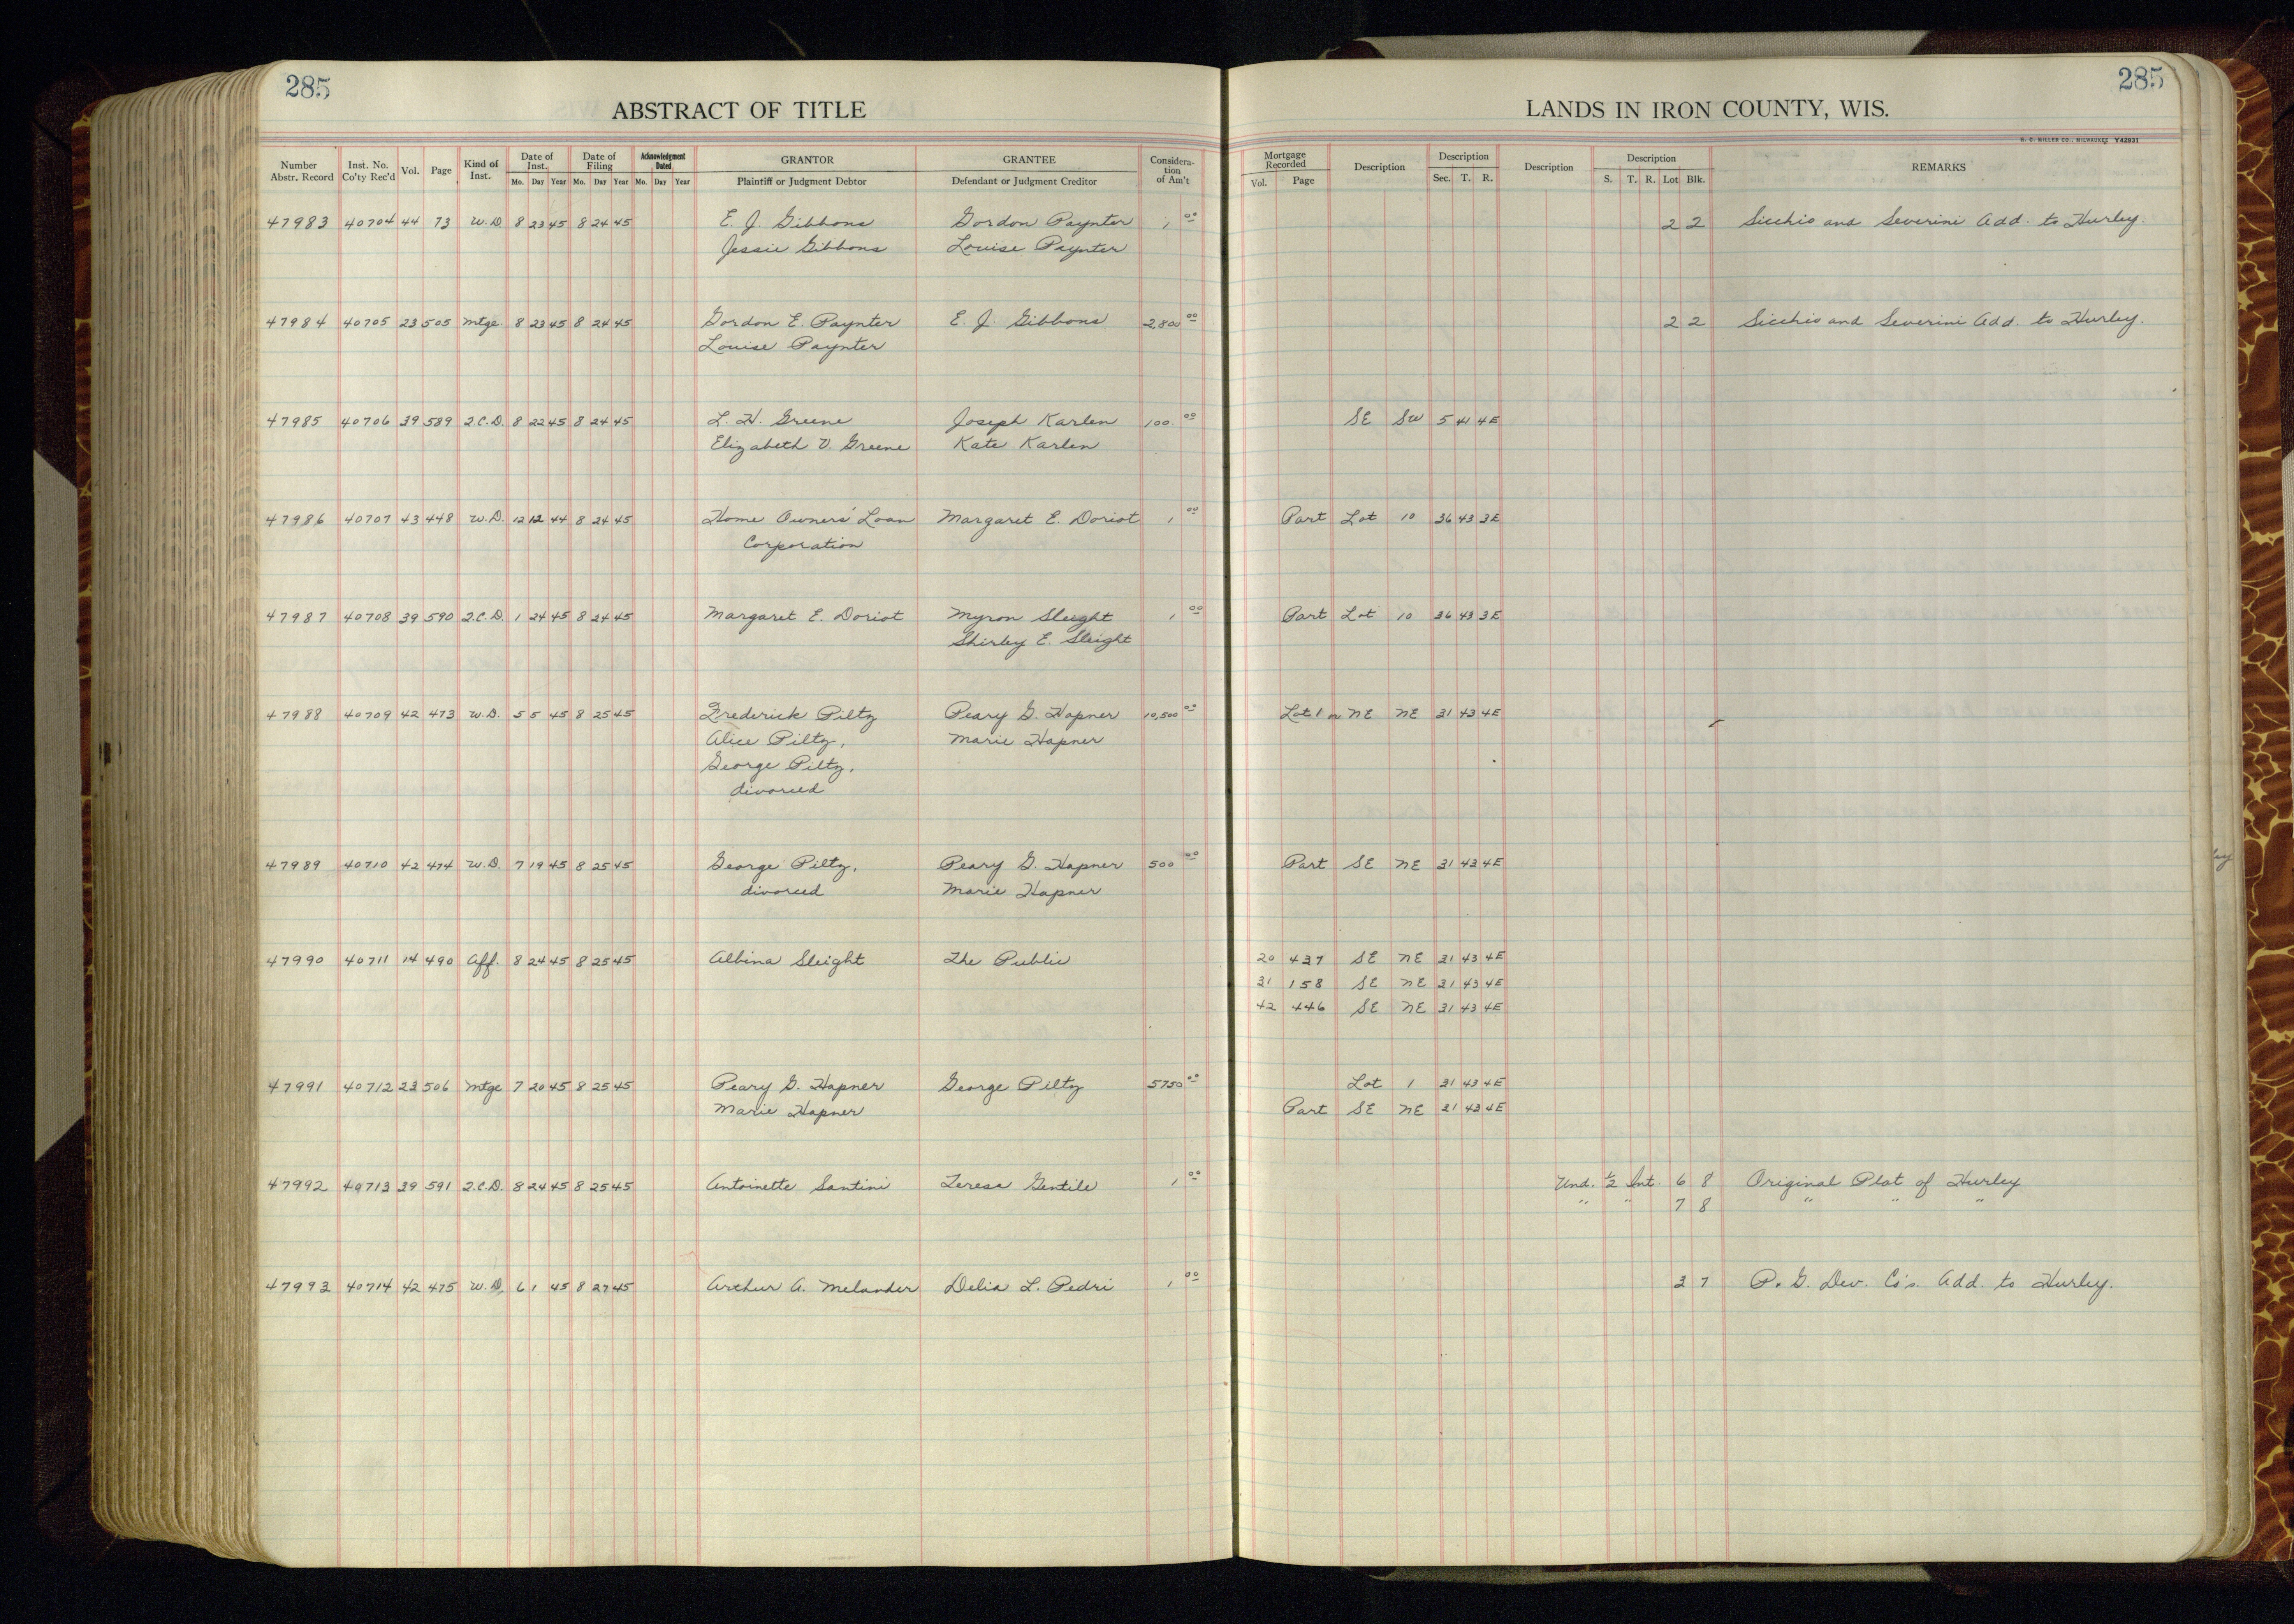 285
285
ABSTRACT OF TITLE
LANDS IN IRON COUNTY, WIS.
H. C. MILLER CO., MILWAUKEE Y42931
Number Abstr. Record Inst. No. Co'ty Rec'd Vol. Page Kind of Inst. Date of Inst. Mo. Day Year Date of Filing Mo. Day Year Acknowledgment Dated Mo. Day Year GRANTOR Plaintiff or Judgment Debtor GRANTEE Defendant or Judgment Creditor Considera-tion of Am't Mortgage Recorded Vol. Page Description Description Sec. T. R. Description Description S. T. R. Lot Blk. REMARKS
47983 40704 44 73 W.D. 8 23 45 8 24 45 E. J. Gibbons Gordon Paynter 1 00 2 2 Sicchio and Severini Add. to Hurley.
Jessie Gibbons Louise Paynter
47984 40705 23 505 Mtge. 8 23 45 8 24 45 Gordon E. Paynter E. J. Gibbons 2,800 00 2 2 Sicchio and Severini Add. to Hurley.
Louise Paynter
47985 40706 39 589 Q.C.D. 8 22 45 8 24 45 L. H. Greene Joseph Karlen 100. 00 SE SW 5 41 4E
Elizabeth V. Greene Kate Karlen
47986 40707 43 448 W.D. 12 12 44 8 24 45 Home Owners' Loan Margaret E. Doriot 1 00 Part Lot 10 36 43 3E
Corporation
47987 40708 39 590 Q.C.D. 1 24 45 8 24 45 Margaret E. Doriot Myron Sleight 1 00 Part Lot 10 36 43 3E
Shirley E. Sleight
47988 40709 42 473 W.D. 5 5 45 8 25 45 Frederick Piltz Peary G. Hapner 10,500 00 Lot 1 or NE NE 31 43 4E
Alice Piltz, Marie Hapner
George Piltz,
divorced
47989 40710 42 474 W.D. 7 19 45 8 25 45 George Piltz, Peary G. Hapner 500 00 Part SE NE 31 43 4E
divorced Marie Hapner
47990 40711 14 490 Aff. 8 24 45 8 25 45 Albina Sleight The Public 20 437 SE NE 31 43 4E
31 158 SE NE 31 43 4E
42 446 SE NE 31 43 4E
47991 40712 23 506 Mtge 7 20 45 8 25 45 Peary G. Hapner George Piltz 5750 00 Lot 1 31 43 4E
Marie Hapner Part SE NE 31 43 4E
47992 40713 39 591 Q.C.D. 8 24 45 8 25 45 Antoinette Santini Teresa Gentile 1 00 Und. 1/2 Int. 6 8 Original Plat of Hurley
" " 7 8 " " "
47993 40714 42 475 W.D. 6 1 45 8 27 45 Arthur A. Melander Delia L. Pedri 1 00 3 7 P. G. Dev. Co's. Add. to Hurley.